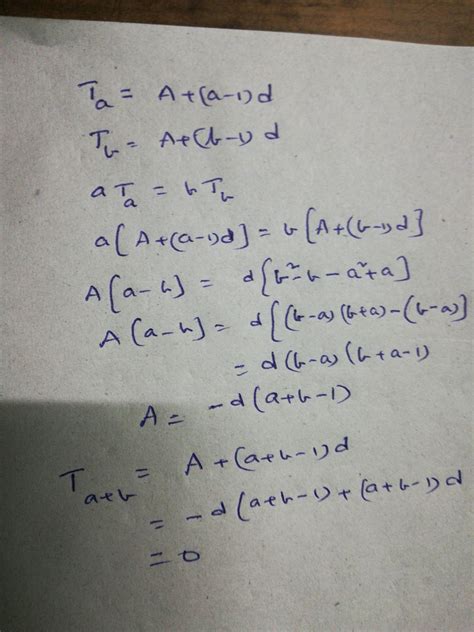 T_a = A+(a-1)d
T_b = A+(b-1)d
a T_a = b T_b
a[A+(a-1)d] = b[A+(b-1)d]
A[a-b] = d[b²-b-a²+a]
A[a-b] = d[(b-a)(b+a)-(b-a)]
= d(b-a)(b+a-1)
A = -d(a+b-1)
T_{a+b} = A+(a+b-1)d
= -d(a+b-1)+(a+b-1)d
= 0